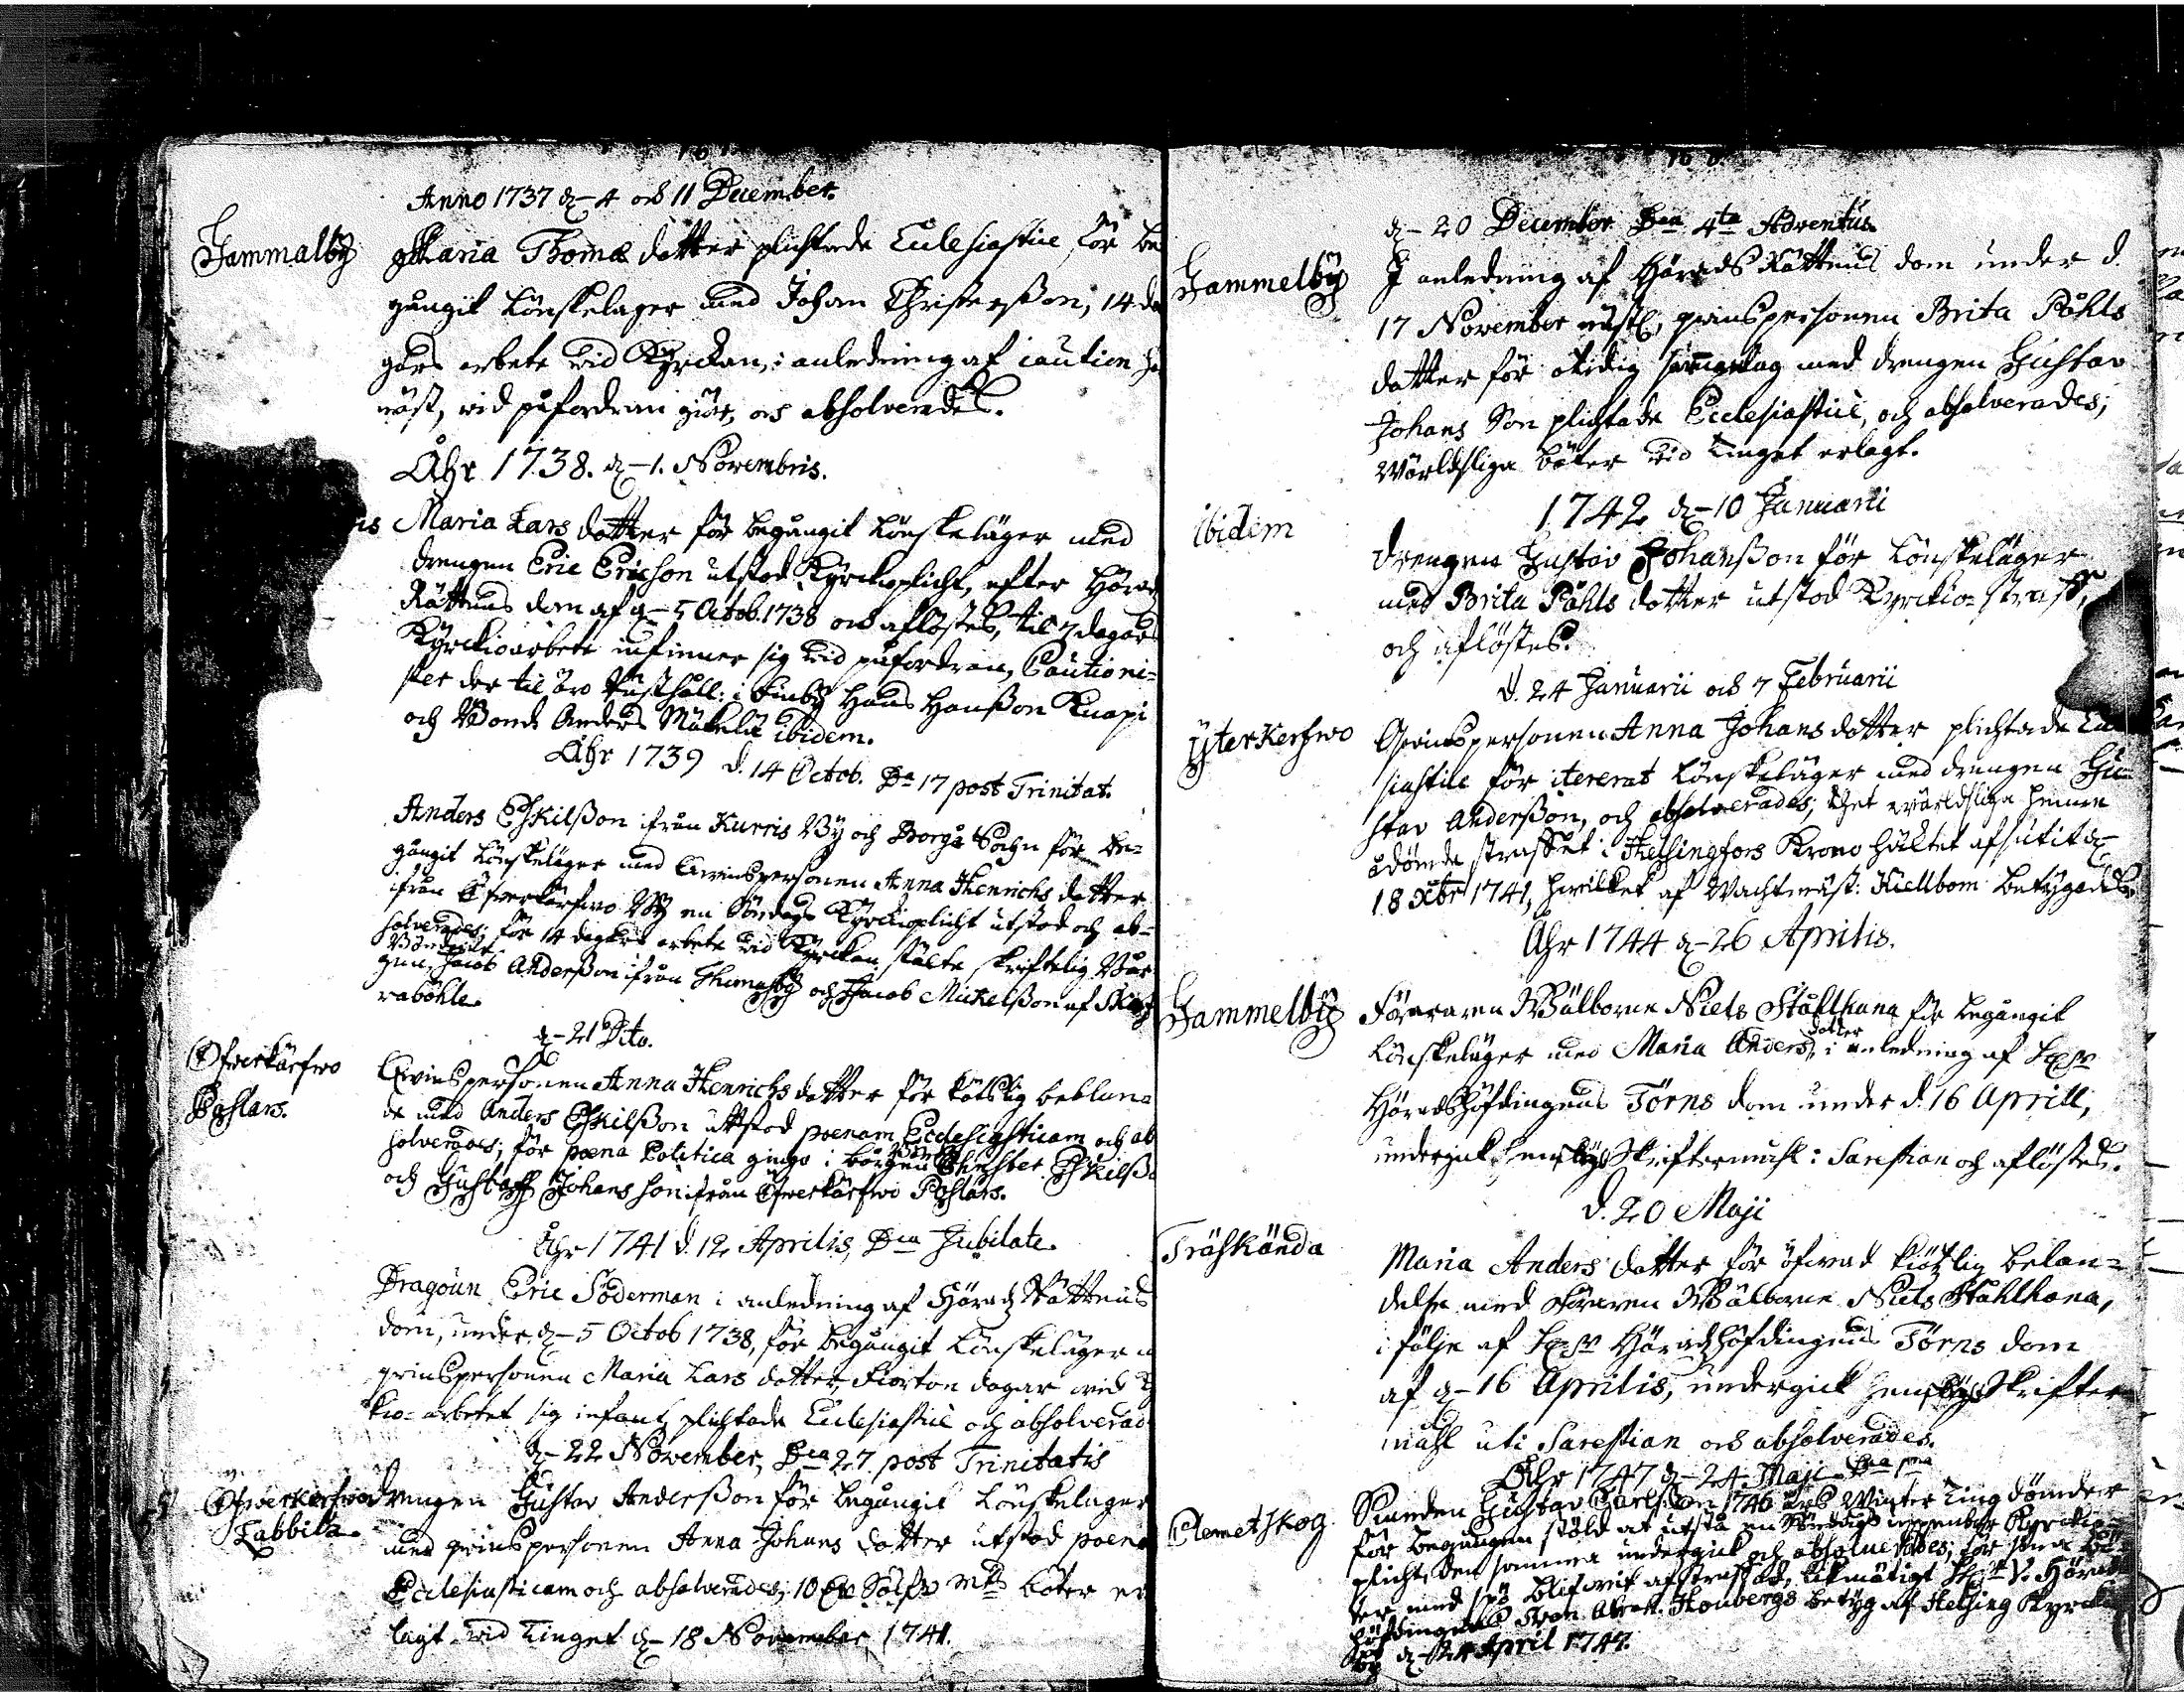 Anno 1737 d. 4 och 11 December.
Gammalby Maria Thomæ dotter plichtade Ecclesiastice för be
gångit Lönskelager med Johan Christersson, 14 da
gars arbete wid Kyrckan, i anledning af caution
näst, wid påfordran giör, och absolverades.
Åhr 1738. d. 1. Novembris.
Maria Lars dotter för begångit Lönskeläger med
drengen Eric Ericson utstod Kyrckioplicht, efter Härads
Rättens dom af d. 5 Octob. 1738 och aflöstes, til 7 dagars
Kyrckioarbete infinner sig wid påfordran, Cautioni-
ster der til äro i Finby Hans Hansson Knapi
och Bonde Anders Mäkelä ibidem.
Åhr 1739 d. 14 Octob. Dca 17 post Trinitat.
Anders Eskilsson ifrån Kurris By och Borgå Sochn för be-
gångit Lönskeläger med Qwinspersonen Anna Henrichs dotter
ifrån Öfwerkärfwo By en Söndags Kyrckioplicht utstod och ab-
solverades; för 14 dagars arbete wid Kyrckan stälte skriftelig Bår
gen, Bönder Jacob Andersson ifrån och Jacob Mickelsson af
raböhle.
d. 21 Dito.
Öfwerkärfwo Qwinspersonen Anna Henrichs dotter för kötslig beblan-
Påhlars. de med Anders Eskilsson utstod poenam Ecclesiasticam och ab
solverades; för poena Politica gingo i borgen Christer Eskilsso
och Gustaff Johansson ifrån Öfwerkärfwo Påhlars.
Åhr 1741 d. 12 Aprilis, Dca Jubilate.
Dragoun Eric Söderman i anledning af Härads Rättens
dom, under d. 5 Octob 1738, för begångit Lönskeläger
qvinspersonen Maria Lars dotter, Fiorton dagar wid
kio-arbetet sig infant, plichtade Ecclesiastice och absolverad
d. 22 November, Dca 27 post Trinitatis
Öfwerkerfwo drengen Gustav Andersson för begångit Lönskelager
Labbila. med qvinspersonen Anna Johans dotter utstod poena
Ecclesiasticam och absolverades; 10 Sölf bötes er
lagt wid Tinget d. 18 November 1741.
d. 20 December Dca 4ta Adventus
Gammelby I anledning af Härads Rättens dom under d.
17 November qvinspersonen Brita Påhls
dotter för otidig sängelag med drengen Gustav
Johans Son plichtade Ecclesiastice, och absolverades;
Wärldsliga böter wid Tinget erlagt.
1742 d. 10 Januarii
ibidem drengen Gustav Johansson för Lönskeläger
med Brita Påhls dotter utstod Kyrckio-straff,
och aflöstes.
d. 24 Januarii och 7 Februarii
Ytterkerfwo Qwinspersonen Anna Johans dotter plichtade Eccle
siastice för itererat Lönskeläger med drengen Gu-
stav Andersson, och absolverades; thet wärldsliga henne
ådömde straffet i Helsingfors Krono häktet afsutit d.
18 Xbr 1741, hwilket af Wachtmäst: Kiellbom betygades.
Åhr 1744 d. 26 Aprilis.
Gammelby Föraren Wälborne Niels Stålhana för begångit
Lönskeläger med Maria Anders dotter, i anledning af
Häradshöfdingens Törns dom under d. 16 Aprill,
undergick hemligt Skriftermahl i Sacrestian och aflöstes.
d. 20 Maji
Träskända Maria Anders dotter för öfwad kiötzlig belan-
delse med Föraren Wälborne Niels Ståhlhana,
i följe af Häradshöfdingens Törns dom
af d. 16 Aprilis, undergick hemligt Skrifter-
mahl uti Sacrestian och absolverades.
Åhr 1747 d. 24 Maji
Clemetskog. Gustav Carlsson 1746 års Winter Ting dömder
för begången stöld at utstå en Söndags uppenbar Kyrckio-
plicht, den samma undergick och absolverades; för sina bö-
ter med spö blifwit afstraffad, likmätigt V. Härads
höfdingens betyg af Helsing Kyrckio
by d. 24 April 1747.